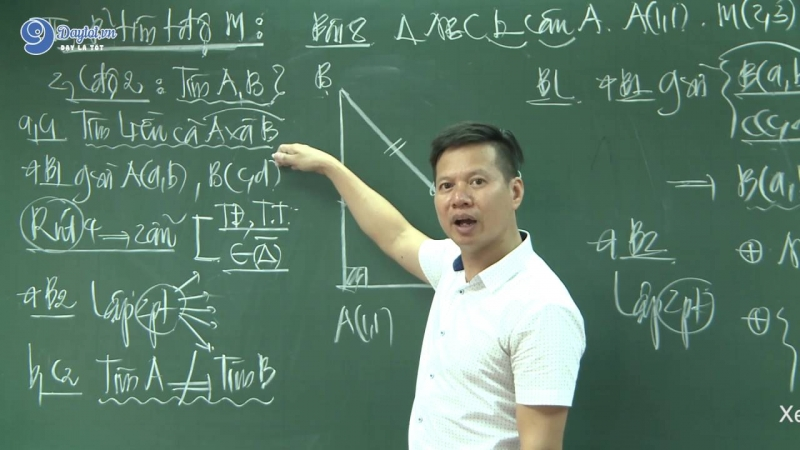 9 Daytot.vn
DẠY LÀ TỐT
tìm tđộ M :
2, Cđộ 2 : Tìm A, B ?
a, C1 Tìm 4 ẩn cả A và B
+ B1 gọi A(a,b), B(c,d)
Rút 4 ⇒ 2 ẩn [ TĐ, TT
∈ (Δ)
+ B2 Lập 2pt
b, C2 Tìm A Tìm B
Bài 8 Δ ABC ⊥ cân A. A(1,1). M(2,3)
B
A(1,1)
BL + B1 gọi { B(a,b
C(c,d
⇒ B(a,b
+ B2
Lập 2pt
Xe